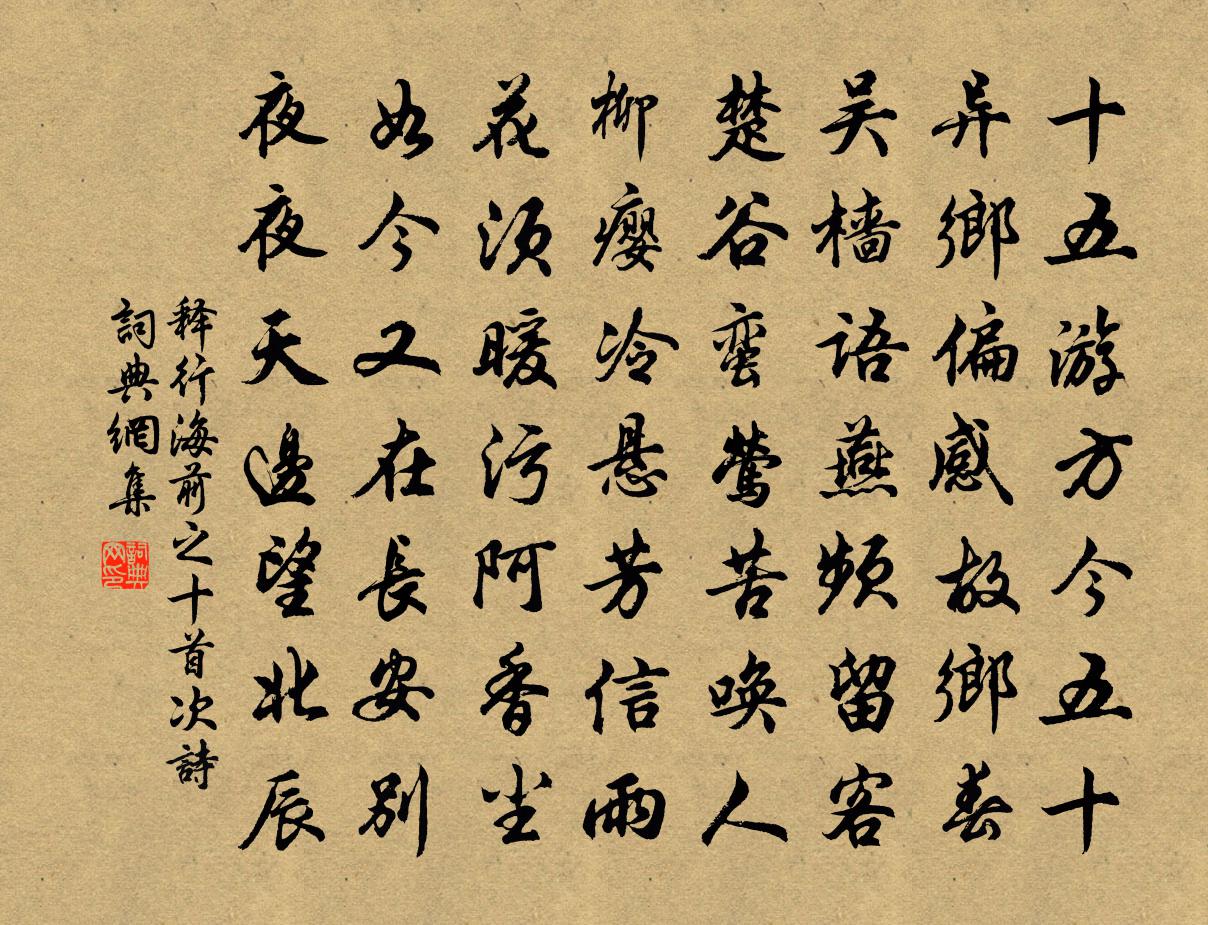 十五游方今五十
异鄉偏感故鄉春
吴檣語燕頻留客
楚谷蛮鶯苦唤人
柳癭冷悬芳信雨
花须暖污阿香尘
如今又在長安别
夜夜天邊望北辰
释行海前之十首次詩
詞典網集
詞典网印